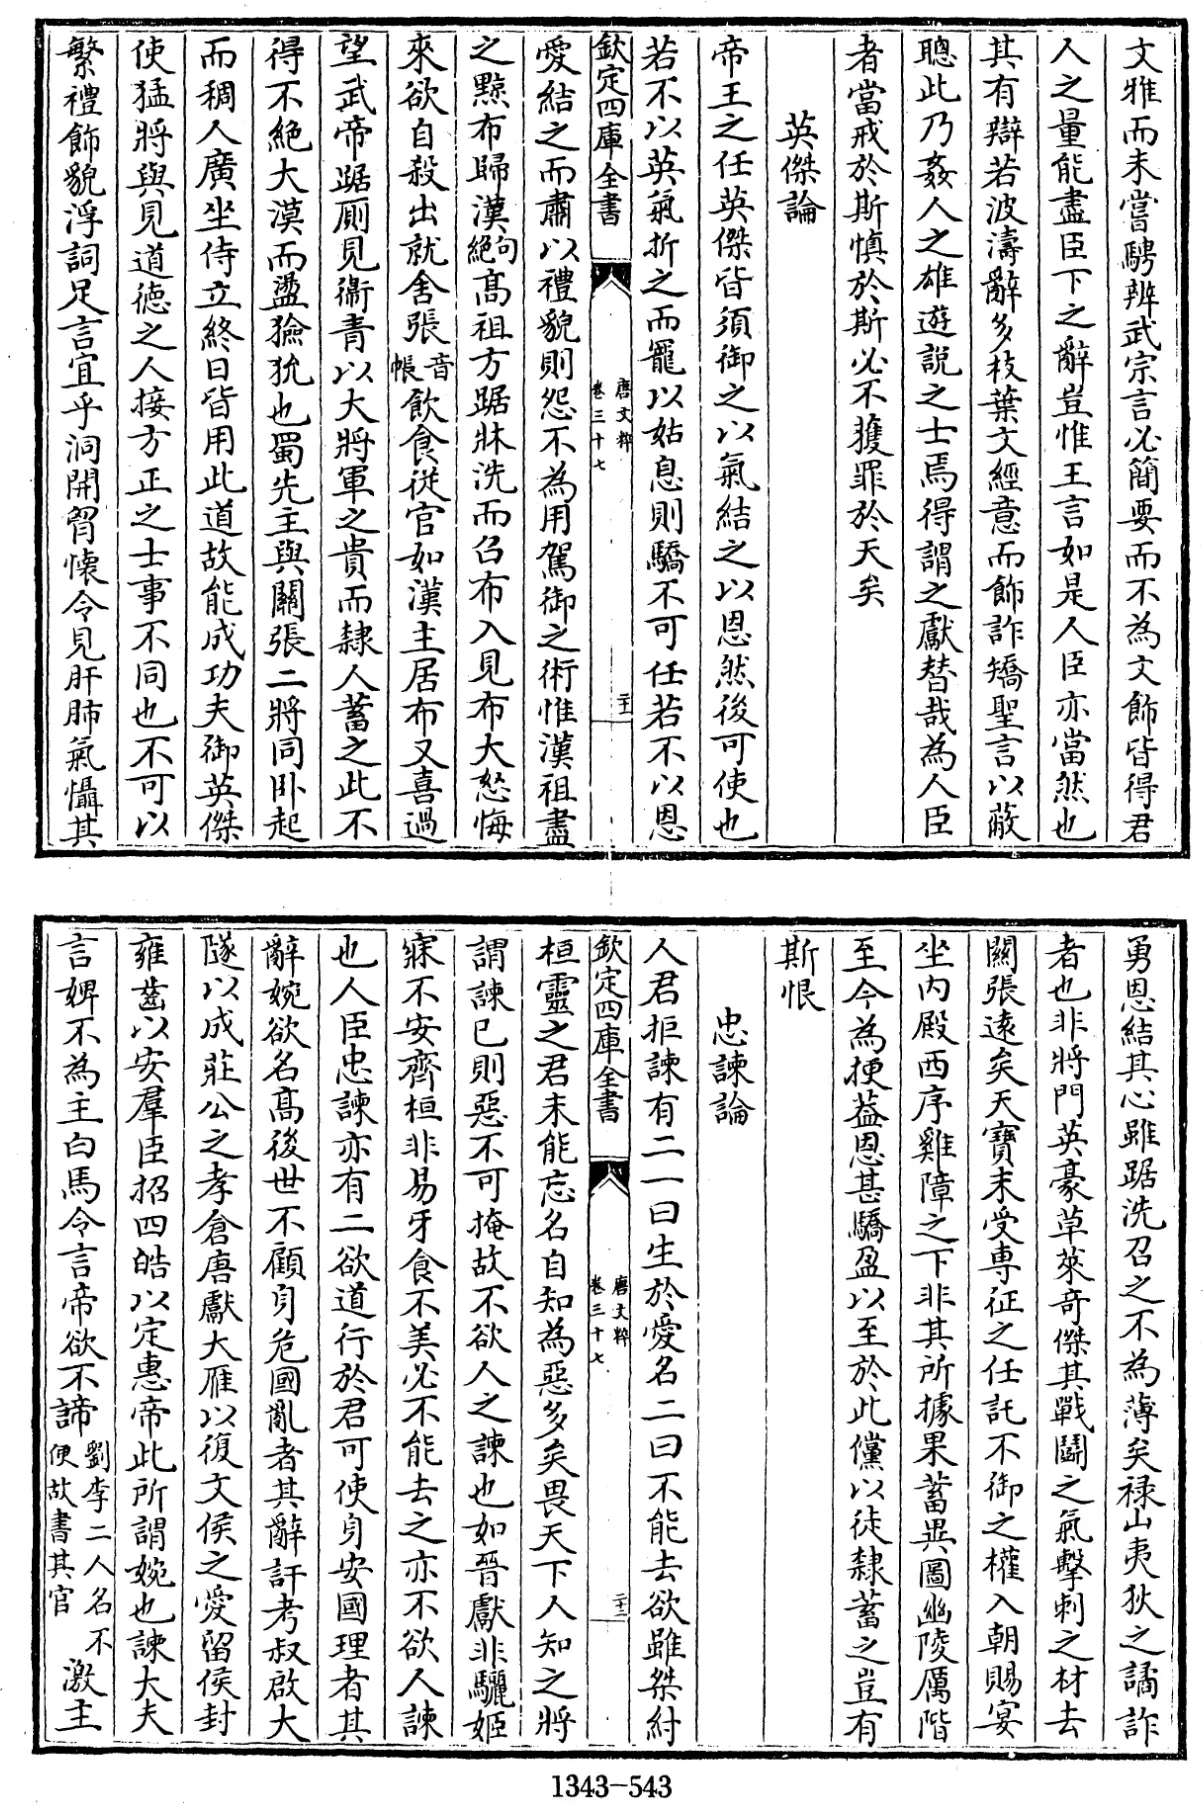 文雅而未嘗騁辨武宗言必簡要而不為文飾皆得君
人之量能盡臣下之辭豈惟王言如是人臣亦當然也
其有辯若波濤辭多枝葉文經意而飾詐矯聖言以蔽
聰此乃姦人之雄遊說之士焉得謂之獻替哉為人臣
者當戒於斯慎於斯必不獲罪於天矣
英傑論
帝王之任英傑皆須御之以氣結之以恩然後可使也
若不以英氣折之而寵以姑息則驕不可任若不以恩
欽定四庫全書
唐文粹
卷三十七
二十一
愛結之而肅以禮貌則怨不為用駕御之術惟漢祖盡
之黥布歸漢絕句高祖方踞牀洗而召布入見布大怒悔
來欲自殺出就舍張音帳飲食從官如漢主居布又喜過
望武帝踞厠見衛青以大將軍之貴而隸人蓄之此不
得不絕大漠而盪獫狁也蜀先主與關張二將同卧起
而稠人廣坐侍立終日皆用此道故能成功夫御英傑
使猛將與見道德之人接方正之士事不同也不可以
繁禮飾貌浮詞足言宜乎洞開胷懷令見肝肺氣懾其
勇恩結其心雖踞洗召之不為薄矣禄山夷狄之譎詐
者也非將門英豪草萊奇傑其戰鬬之氣擊刺之材去
關張遠矣天寶末受專征之任託不御之權入朝賜宴
坐内殿西序雞障之下非其所據果蓄異圖幽陵厲階
至今為挭葢恩甚驕盈以至於此儻以徒隸蓄之豈有
斯恨
忠諫論
人君拒諫有二一曰生於愛名二曰不能去欲雖桀紂
欽定四庫全書
唐文粹
卷三十七
二十二
桓靈之君未能忘名自知為惡多矣畏天下人知之將
謂諫已則惡不可掩故不欲人之諫也如晉獻非驪姬
寐不安齊桓非易牙食不美必不能去之亦不欲人諫
也人臣忠諫亦有二欲道行於君可使身安國理者其
辭婉欲名髙後世不顧身危國亂者其辭訐考叔啟大
隧以成莊公之孝倉唐獻大雁以復文侯之愛留侯封
雍齒以安羣臣招四皓以定惠帝此所謂婉也諫大夫
言婢不為主白馬令言帝欲不諦劉李二人名不便故書其官激主